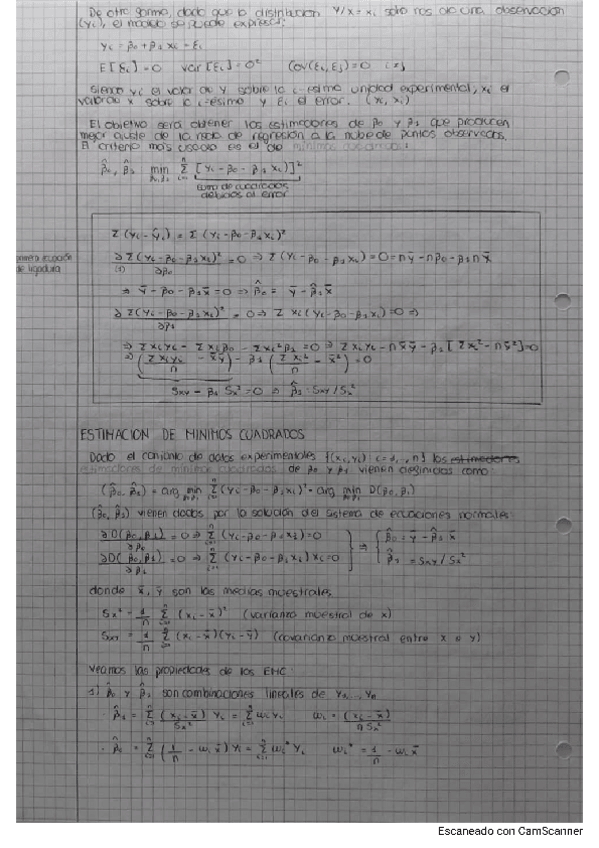 De otra forma, dado que la distribución Y/X=xi solo nos da una observación
(yi), el modelo se puede expresar:
yi = β0 + β1 xi = εi
E[εi]=0 var[εi]=σ² Cov(εi, εj)=0 i≠j
Siendo yi el valor de Y sobre la i-ésima unidad experimental, xi el
valor de x sobre la i-ésima y εi el error. (xi, yi)
El objetivo será obtener las estimaciones de β0 y β1 que producen
mejor ajuste de la recta de regresión a la nube de puntos observados.
El criterio más usado es el de mínimos cuadrados:
β̂0, β̂1 min β0,β1 Σ [yi - β0 - β1 xi)]²
suma de cuadrados
debidos al error
Σ (yi - ŷi) = Σ (yi - β0 - β1 xi)²
primera ecuación
de ligadura
∂ Σ (yi - β0 - β1 xi)² / ∂β0 = 0 ⇒ Σ (yi - β0 - β1 xi) = 0 = nȳ - nβ0 - β1 n x̄
⇒ ȳ - β0 - β1 x̄ = 0 ⇒ β̂0 = ȳ - β̂1 x̄
∂ Σ (yi - β0 - β1 xi)² / ∂β1 = 0 ⇒ Σ xi (yi - β0 - β1 xi) = 0 ⇒
⇒ Σ xi yi - Σ xi β0 - Σ xi² β1 = 0 ⇒ Σ xi yi - n x̄ ȳ - β1 [Σ xi² - n x̄²] = 0
⇒ (Σ xi yi / n - x̄ ȳ) - β1 (Σ xi² / n - x̄²) = 0
Sxy - β1 Sx² = 0 ⇒ β̂1 = Sxy / Sx²
ESTIMACION DE MINIMOS CUADRADOS
Dado el conjunto de datos experimentales {(xi, yi) i=1,..,n} los estimadores
estimadores de mínimos cuadrados de β0 y β1 vienen definidos como:
(β̂0, β̂1) = arg min β0,β1 Σ (yi - β0 - β1 xi)² = arg min β0,β1 D(β0, β1)
(β̂0, β̂1) vienen dados por la solución del sistema de ecuaciones normales:
∂D(β0, β1) / ∂β0 = 0 ⇒ Σ (yi - β0 - β1 xi) = 0 ⇒ β̂0 = ȳ - β̂1 x̄
∂D(β0, β1) / ∂β1 = 0 ⇒ Σ (yi - β0 - β1 xi) xi = 0 β̂1 = Sxy / Sx²
donde x̄, ȳ son las medias muestrales,
Sx² = 1/n Σ (xi - x̄)² (varianza muestral de x)
Sxy = 1/n Σ (xi - x̄)(yi - ȳ) (covarianza muestral entre x e y)
Veamos las propiedades de los EMC:
1) β̂0 y β̂1 son combinaciones lineales de Y1 ... Yn
· β̂1 = Σ (xi - x̄) / Sx² Yi = Σ ωi Yi ωi = (xi - x̄) / n Sx²
· β̂0 = Σ (1/n - ωi x̄) Yi = Σ ωi* Yi ωi* = 1/n - ωi x̄
Escaneado con CamScanner